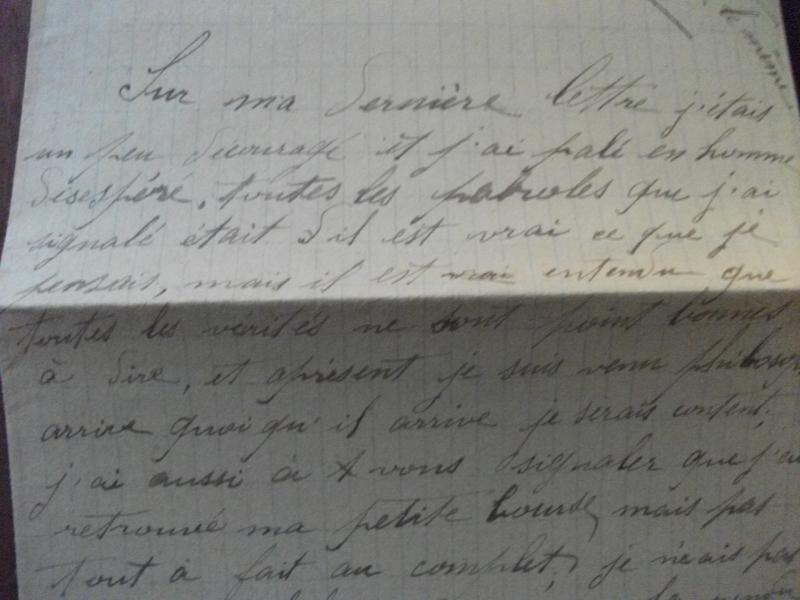 le même
Sur ma dernière lettre j'étais
un peu découragé et j'ai palé en homme
désespéré, toutes les paroles que j'ai
signalé était s'il est vrai ce que je
pensais, mais il est vrai entendu que
toutes les vérités ne sont point bonnes
à dire, et aprésent je suis venu philosop
arrive quoi qu'il arrive je serais content,
j'ai aussi à vous signaler que j'ai
retrouvé ma petite bourse, mais pas
tout à fait au complet, je n'eais pas